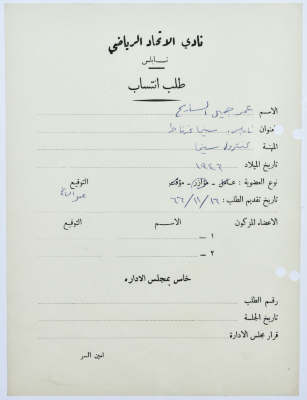 نادي الاتحاد الرياضي
نابلس
طلب انتساب
الاسم عمر جميل
عنوان نابلس سينما غرناطة
المهنة كنترول سينما
تاريخ الميلاد ١٩٤٣
نوع العضوية : عامل - مؤازر - مؤقت التوقيع
تاريخ تقديم الطلب : ١٦/١١/٦٦
الاعضاء المزكون الاسم التوقيع
١ -
٢ -
خاص بمجلس الاداره
رقم الطلب
تاريخ الجلسة
قرار مجلس الادارة
امين السر